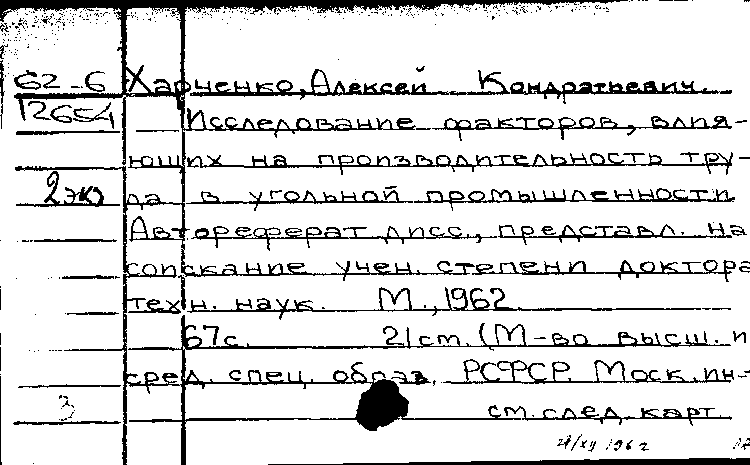 62-6 Харченко, Алексей Кондратьевич.
12654 Исследование факторов, влия-
ющих на производительность тру-
2 экз да в угольной промышленности
Автореферат дисс., представл. на
соискание учен. степени доктора
техн. наук. М., 1962.
67с. 21см. (М-во высш. и
сред. спец. образ. РСФСР. Моск. ин-
3 см. след. карт.
1962